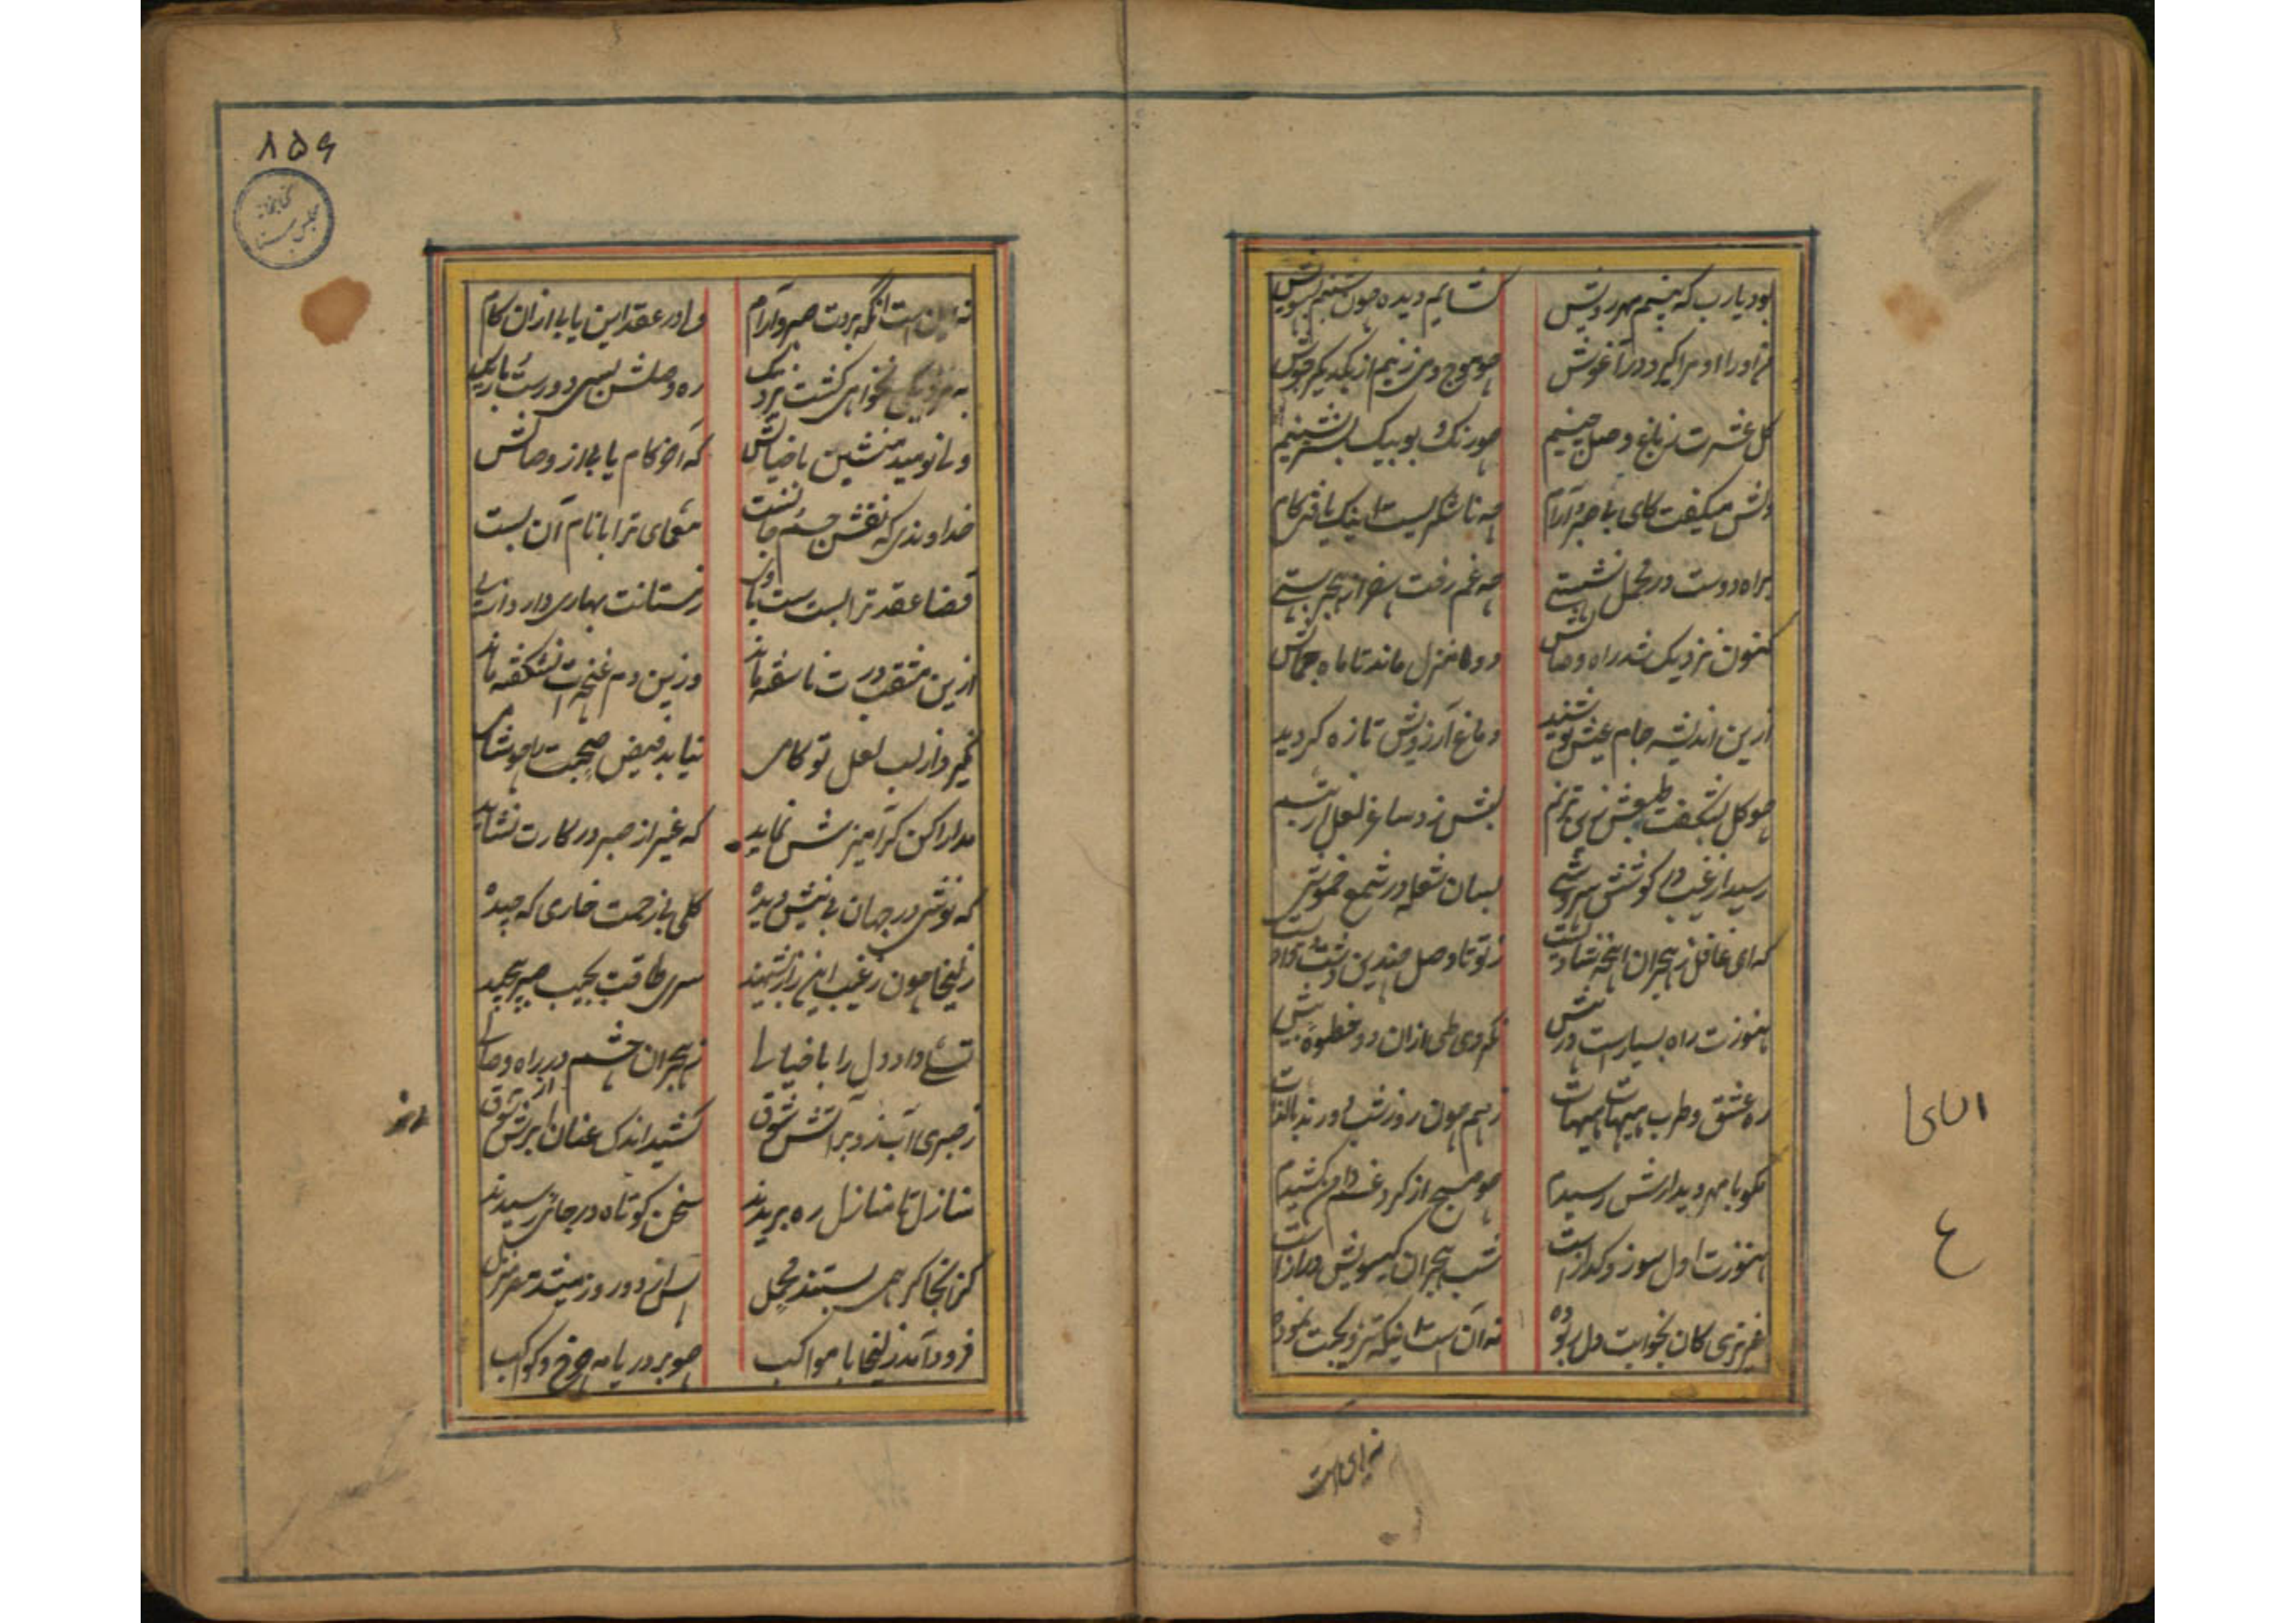 بود یارب که بینم مهر رویش گشایم دیده چون شبنم بسویش
من او را او مرا گیرد در آغوش چو موج وی زنیم از یکدیگر جوش
گل عشرت ز باغ وصل چینیم چو رنگ و بو بیک بستر نشینیم
دلش میگفت کای بی صبر و آرام چه ناشکریست اینک یافتی کام
براه دوست در محمل نشستی چه غم رفت از هجر رستی
کنون نزدیک شد راه وصالش دو منزل ماند تا ماه جمالش
ازین اندیشه جام عیش نوشید دماغ آرزویش تازه گردید
چو گل بشکفت طبعش بی ترنم لبش زد ساغر لعل از تبسم
رسید از غیب در گوشش سروشی بسان شعله در شمع خموشی
که ای غافل ز هجران اینچه شادیست ز تو تا وصل چندین دشت و وادیست
هنوزت راه بسیارست در پیش نکردی طی ازان دو خطوهٔ بیش
ره عشق و طرب هیهات هیهات ز هم چون روز و شب دورند بالذات
مگو با مهر دیدارش رسیدم چو صبح از گرد غم دامن کشیدم
هنوزت اول سوز و گدازست شب هجران گیسویش درازست
عزیزی کان بخوابت دل ربوده نه آن است اینکه تزویجت نموده
نه این است
نه این است آنکه بردت صبر و آرام ولی در عقد این یابی ازان کام
به نزدیکی نخواهی گشت نزدیک ره وصلش بسی دورست و باریک
ولی نومید منشین با خیالش که آخر کام یابی از وصالش
خداوندی که نقش جسم و جان بست معمای ترا با نام آن بست
قضا عقد ترا بست است با وی زمستانت بهاری دارد از پی
ازین مثقب درت ناسفته ماند وزین دم غنچه ات نشکفته ماند
نگیرد از لب لعل تو کامی نیابد فیض صبحت را چو شامی
مدارا کن گر آمیزش نماید که غیر از صبر در کارت نشاید
که نوشی در جهان بی نیش دیده گلی بی زحمت خاری که چیده
زلیخا چون ز غیب این راز بشنید سری طاقت بجیب صبر پیچید
تسلی داد دل را با خیالی ز هجران چشم در راه وصالی
ز صبری آب زد بر آتش شوق کشید اندک عنان از ابرش شوق
منازل تا منازل ره بریدند سخن کوتاه در جائی رسیدند
کز آنجا گر همی بستند محمل پس از دو روز میشد مصر منزل
فرود آمد زلیخا با مواکب چو بر دریا مه چرخ و کواکب
۸۵۶
کتابخانه
مجلس سنا